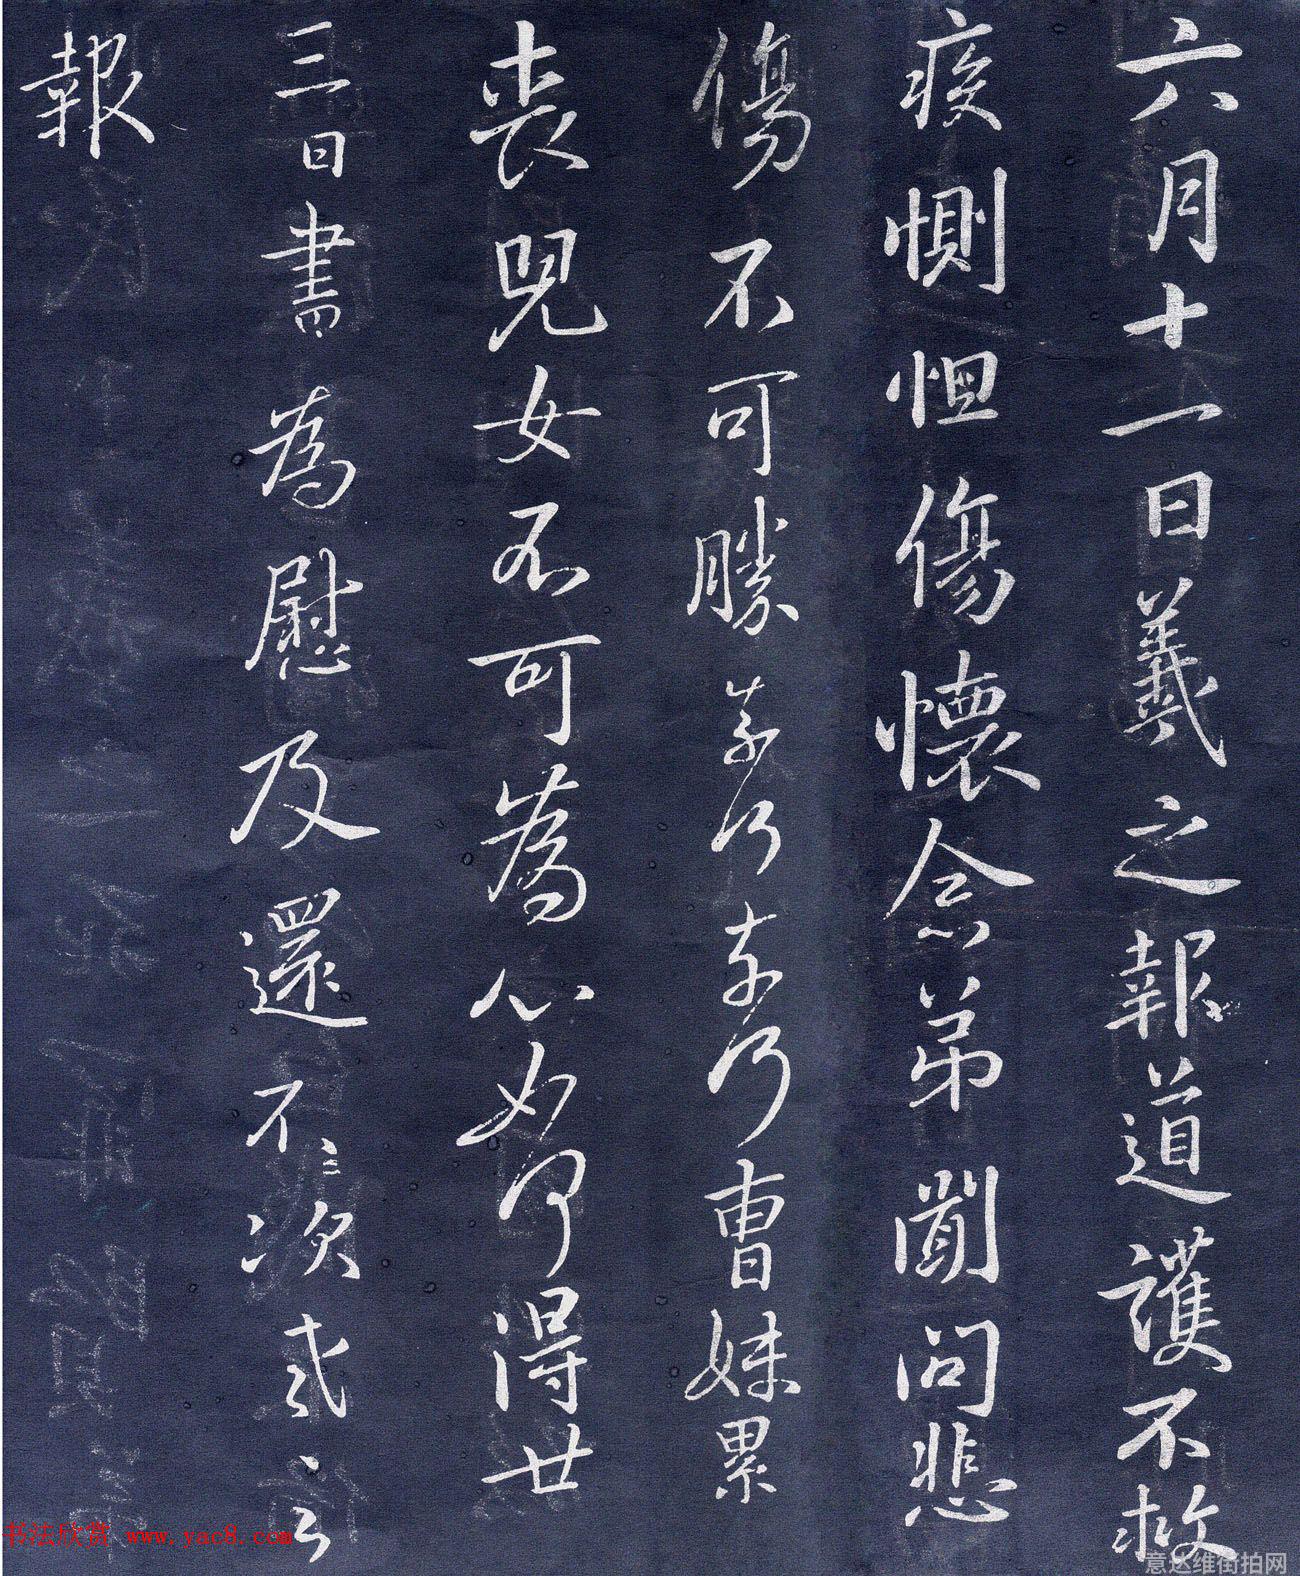 六月十一日羲之報道護不救
疾惻怛傷懷念弟聞問悲
傷不可勝奈何奈何曹妹累
喪兒女不可為心如何得廿
三日書為慰及還不次羲之
報
书法欣赏 www.yac8.com
意达维街拍网